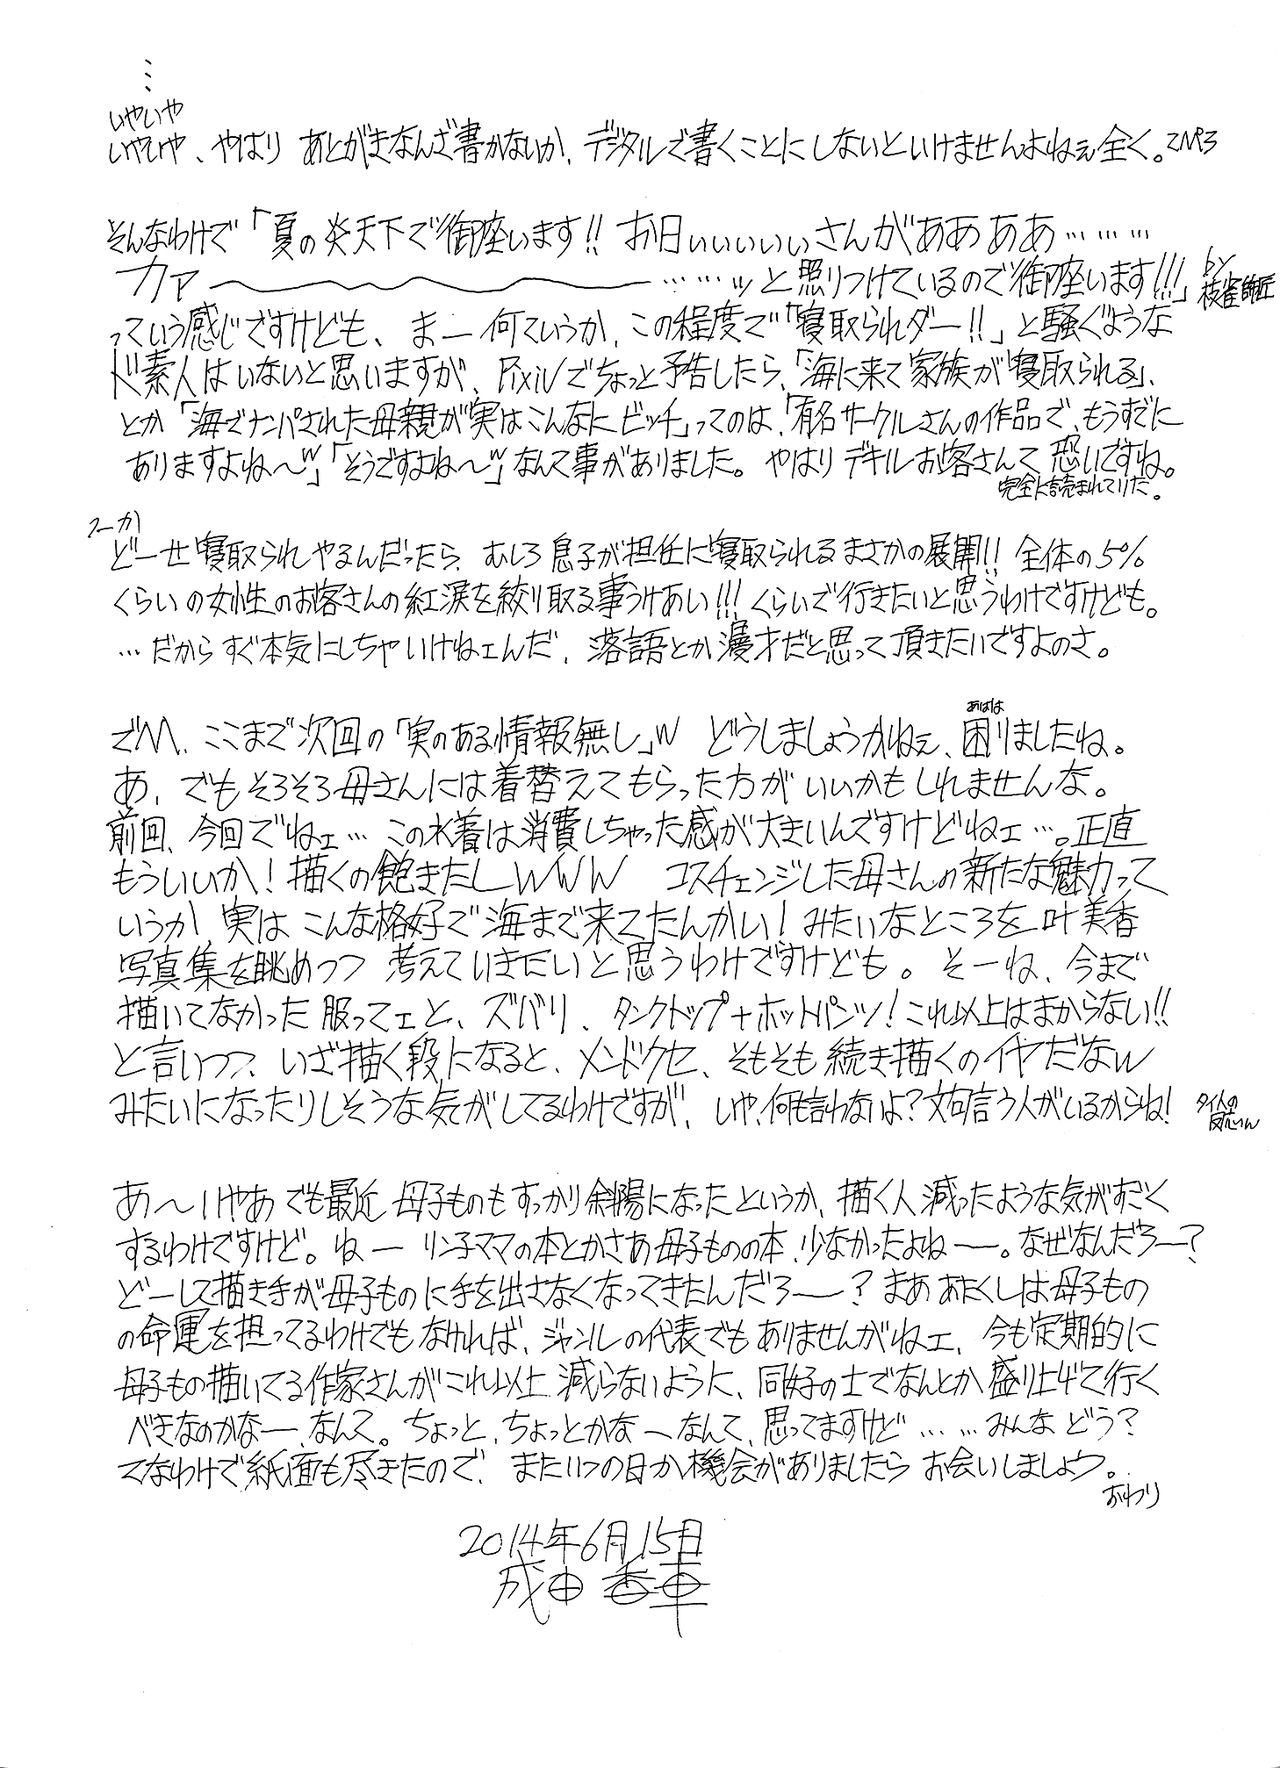 …
いやいや
いやいや、やはり あとがきなんざ書かないか、デジタルで書くことにしないといけませんよねぇ全く。
そんなわけで「夏の炎天下で御座います!! お日ぃぃぃぃぃさんがああああ………
カァ〜〜〜……ッと照りつけているので御座います!!!」by枝雀師匠
っていう感じですけども、まー何ていうか、この程度で「寝取られダー!!」と騒ぐような
ド素人はいないと思いますが、Pixivでちょっと予告したら、「海に来て家族が寝取られる」、
とか「海でナンパされた母親が実はこんなにビッチ」ってのは、「有名サークルさんの作品で、もうすでに
ありますよね〜w」「そうですよね〜w」なんて事がありました。やはりデキルお客さんて恐いですね。
完全に読まれてりだ。
つーか
どーせ寝取られやるんだったら、むしろ息子が担任に寝取られるまさかの展開!! 全体の5%
くらいの女性のお客さんの紅涙を絞り取る事うけあい!!! くらいで行きたいと思うわけですけども。
…だからすぐ本気にしちゃいけねェんだ、落語とか漫才だと思って頂きたいですよのさ。
でW、ここまで次回の「実のある情報無し」w どうしましょうかねぇ、困りましたね。
あはは
あ、でもそろそろ母さんには着替えてもらった方がいいかもしれませんな。
前回、今回でねェ…この水着は消費しちゃった感が大きいんですけどねェ…。正直
もういいか！描くの飽きたしwww コスチェンジした母さんの新たな魅力って
いうか 実は こんな格好で海まで来てたんかい！みたいなところを 叶美香
写真集を眺めつつ 考えていきたいと思うわけですけども。そーね、今まで
描いてなかった服ってェと、ズバリ、タンクトップ+ホットパンツ！これ以上はまからない!!
と言いつつ、いざ描く段になると、メンドクセ、そもそも続き描くのイヤだなw
みたいになったりしそうな気がしてるわけですが、いや、何も言わないよ？文句言う人がいるからね！
あ〜いやあ でも最近 母子ものもすっかり斜陽になったというか、描く人減ったような気がすごく
するわけですけど。ねー リン子ママの本とかさあ母子ものの本、少なかったよねー。なぜなんだろー？
どーして描き手が母子ものに手を出さなくなってきたんだろー？まああたくしは母子もの
の命運を担ってるわけでもなければ、ジャンルの代表でもありませんがねェ、今も定期的に
母子もの描いてる作家さんがこれ以上減らないように、同好の士でなんとか盛り上げて行く
べきなのかなー、なんて。ちょっと、ちょっとかなーなんて、思ってますけど……みんなどう？
てなわけで紙面も尽きたので、またいつの日か機会がありましたらお会いしましょう。
おわり
2014年6月15日
成田香車